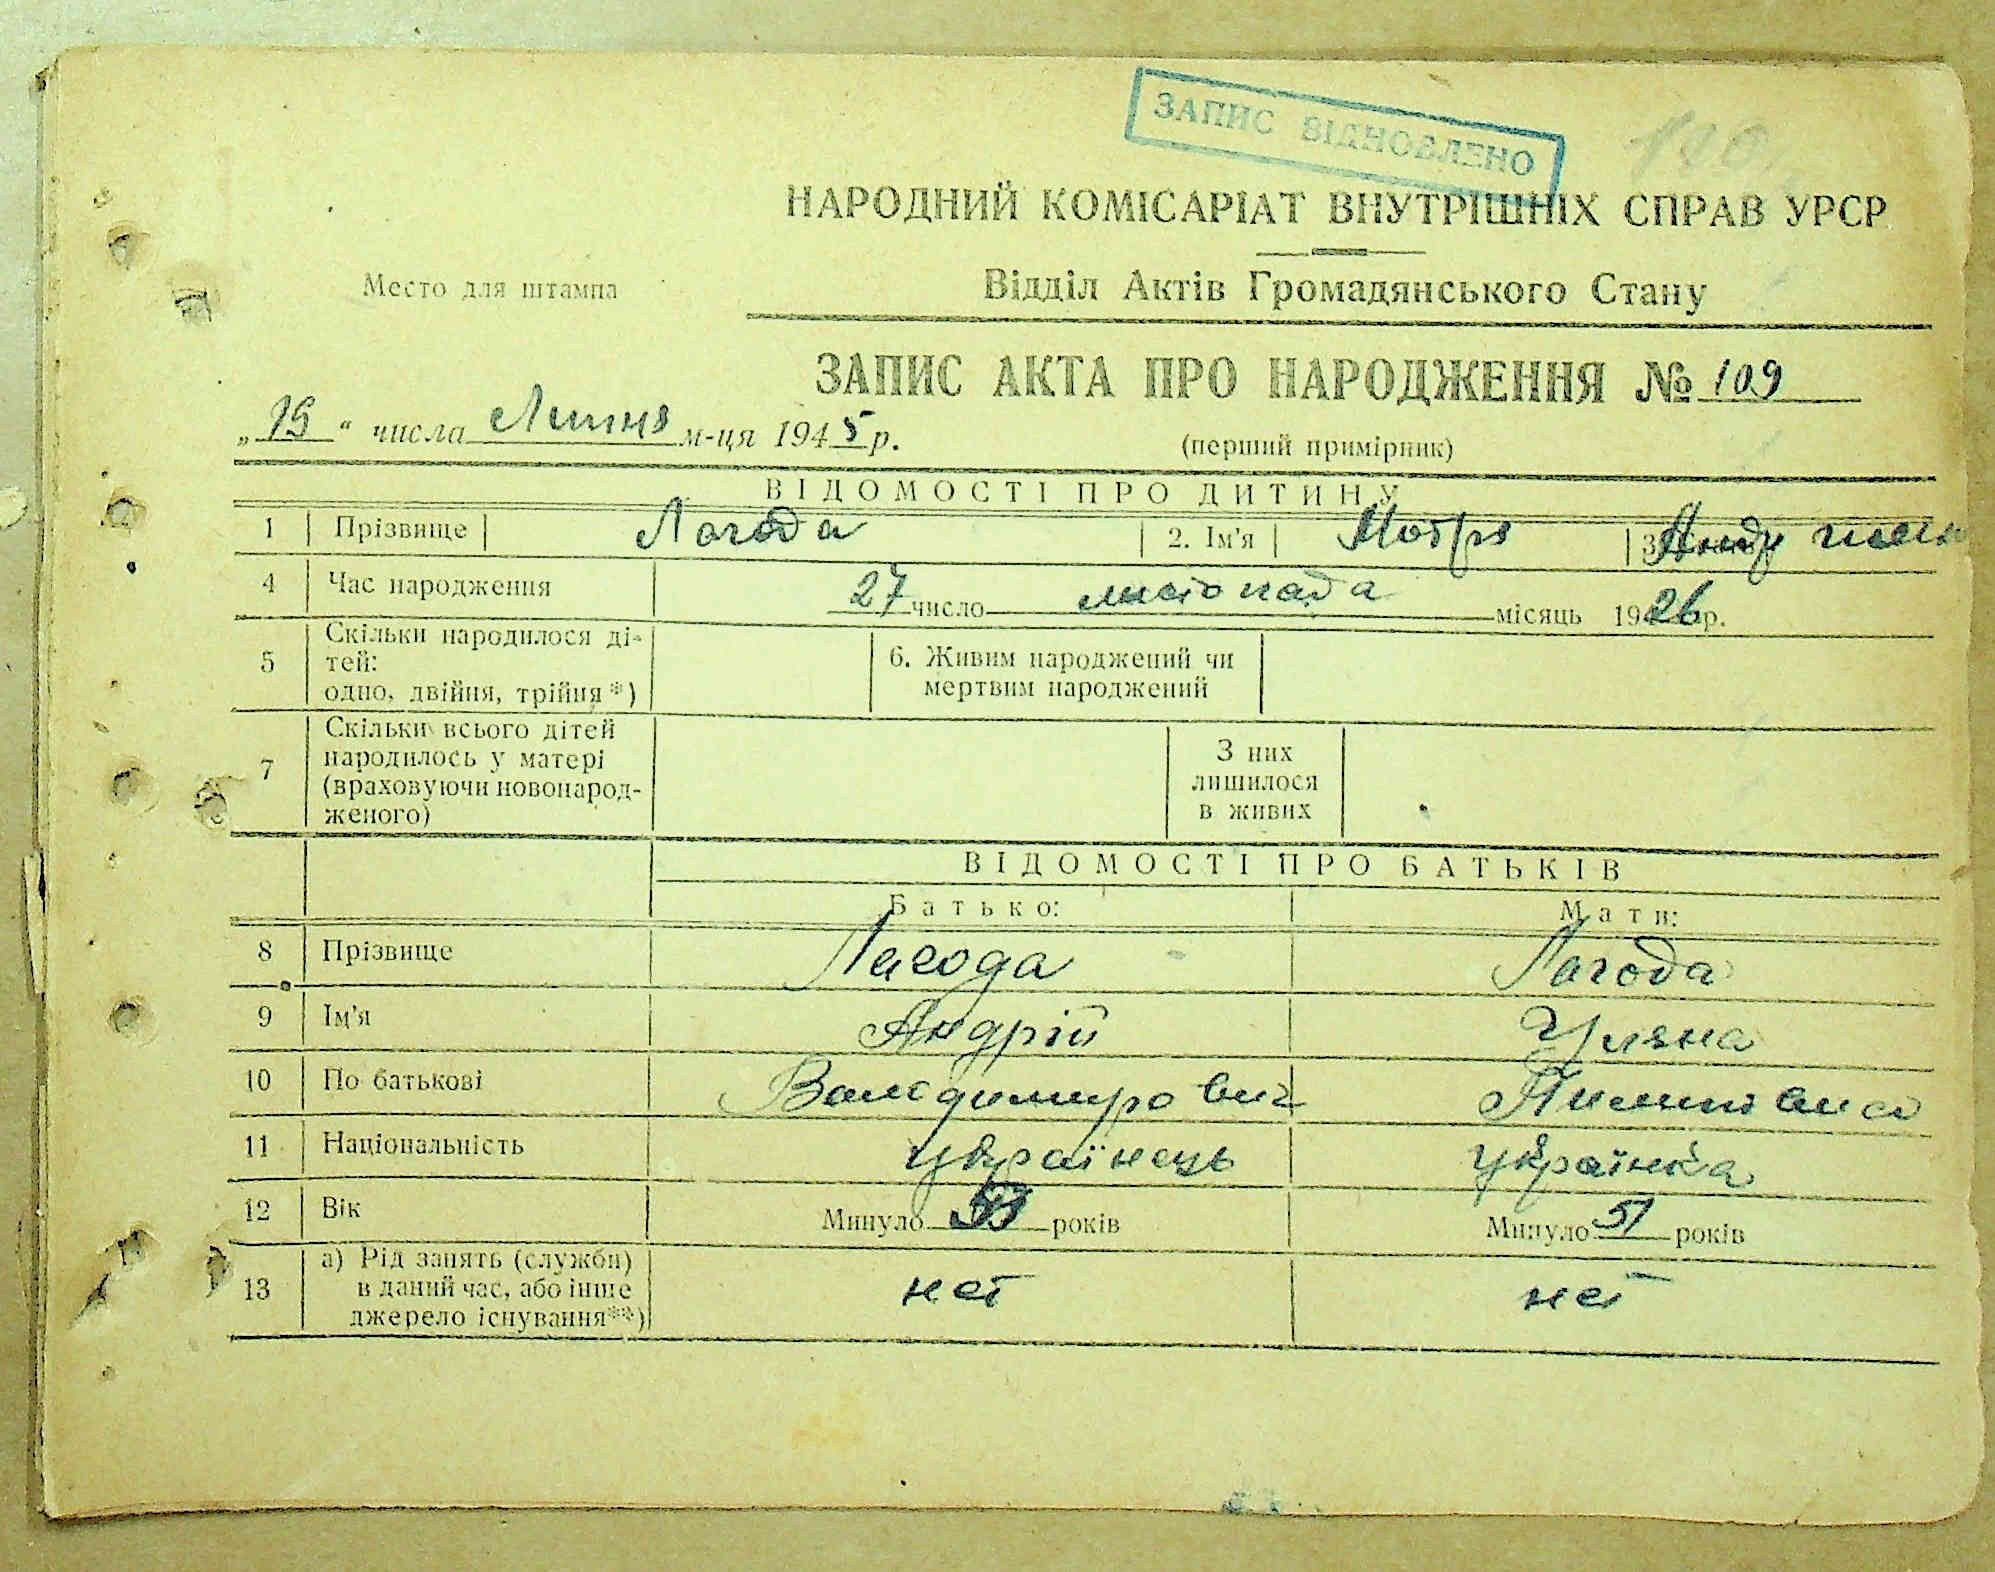 ЗАПИС ВІДНОВЛЕНО
НАРОДНИЙ КОМІСАРІАТ ВНУТРІШНІХ СПРАВ УРСР
Место для штампа
Відділ Актів Громадянського Стану
ЗАПИС АКТА ПРО НАРОДЖЕННЯ № 109
„19“ числа Липня м-ця 1945 р.
(перший примірник)
ВІДОМОСТІ ПРО ДИТИНУ
1 Прізвище Лагода 2. Ім'я Мотря 3
4 Час народження 27 число листопада місяць 1926 р.
5 Скільки народилося ді-
тей:
одно, двійня, трійня*)
6. Живим народжений чи
мертвим народжений
7 Скільки всього дітей
народилось у матері
(враховуючи новонарод-
женого)
З них
лишилося
в живих
ВІДОМОСТІ ПРО БАТЬКІВ
Батько: Мати:
8 Прізвище Лагода Лагода
9 Ім'я Андрій Уляна
10 По батькові Володимирович
11 Національність українець українка
12 Вік Минуло років Минуло 51 років
13 а) Рід занять (служби)
в даний час, або інше
джерело існування**)
нет нет